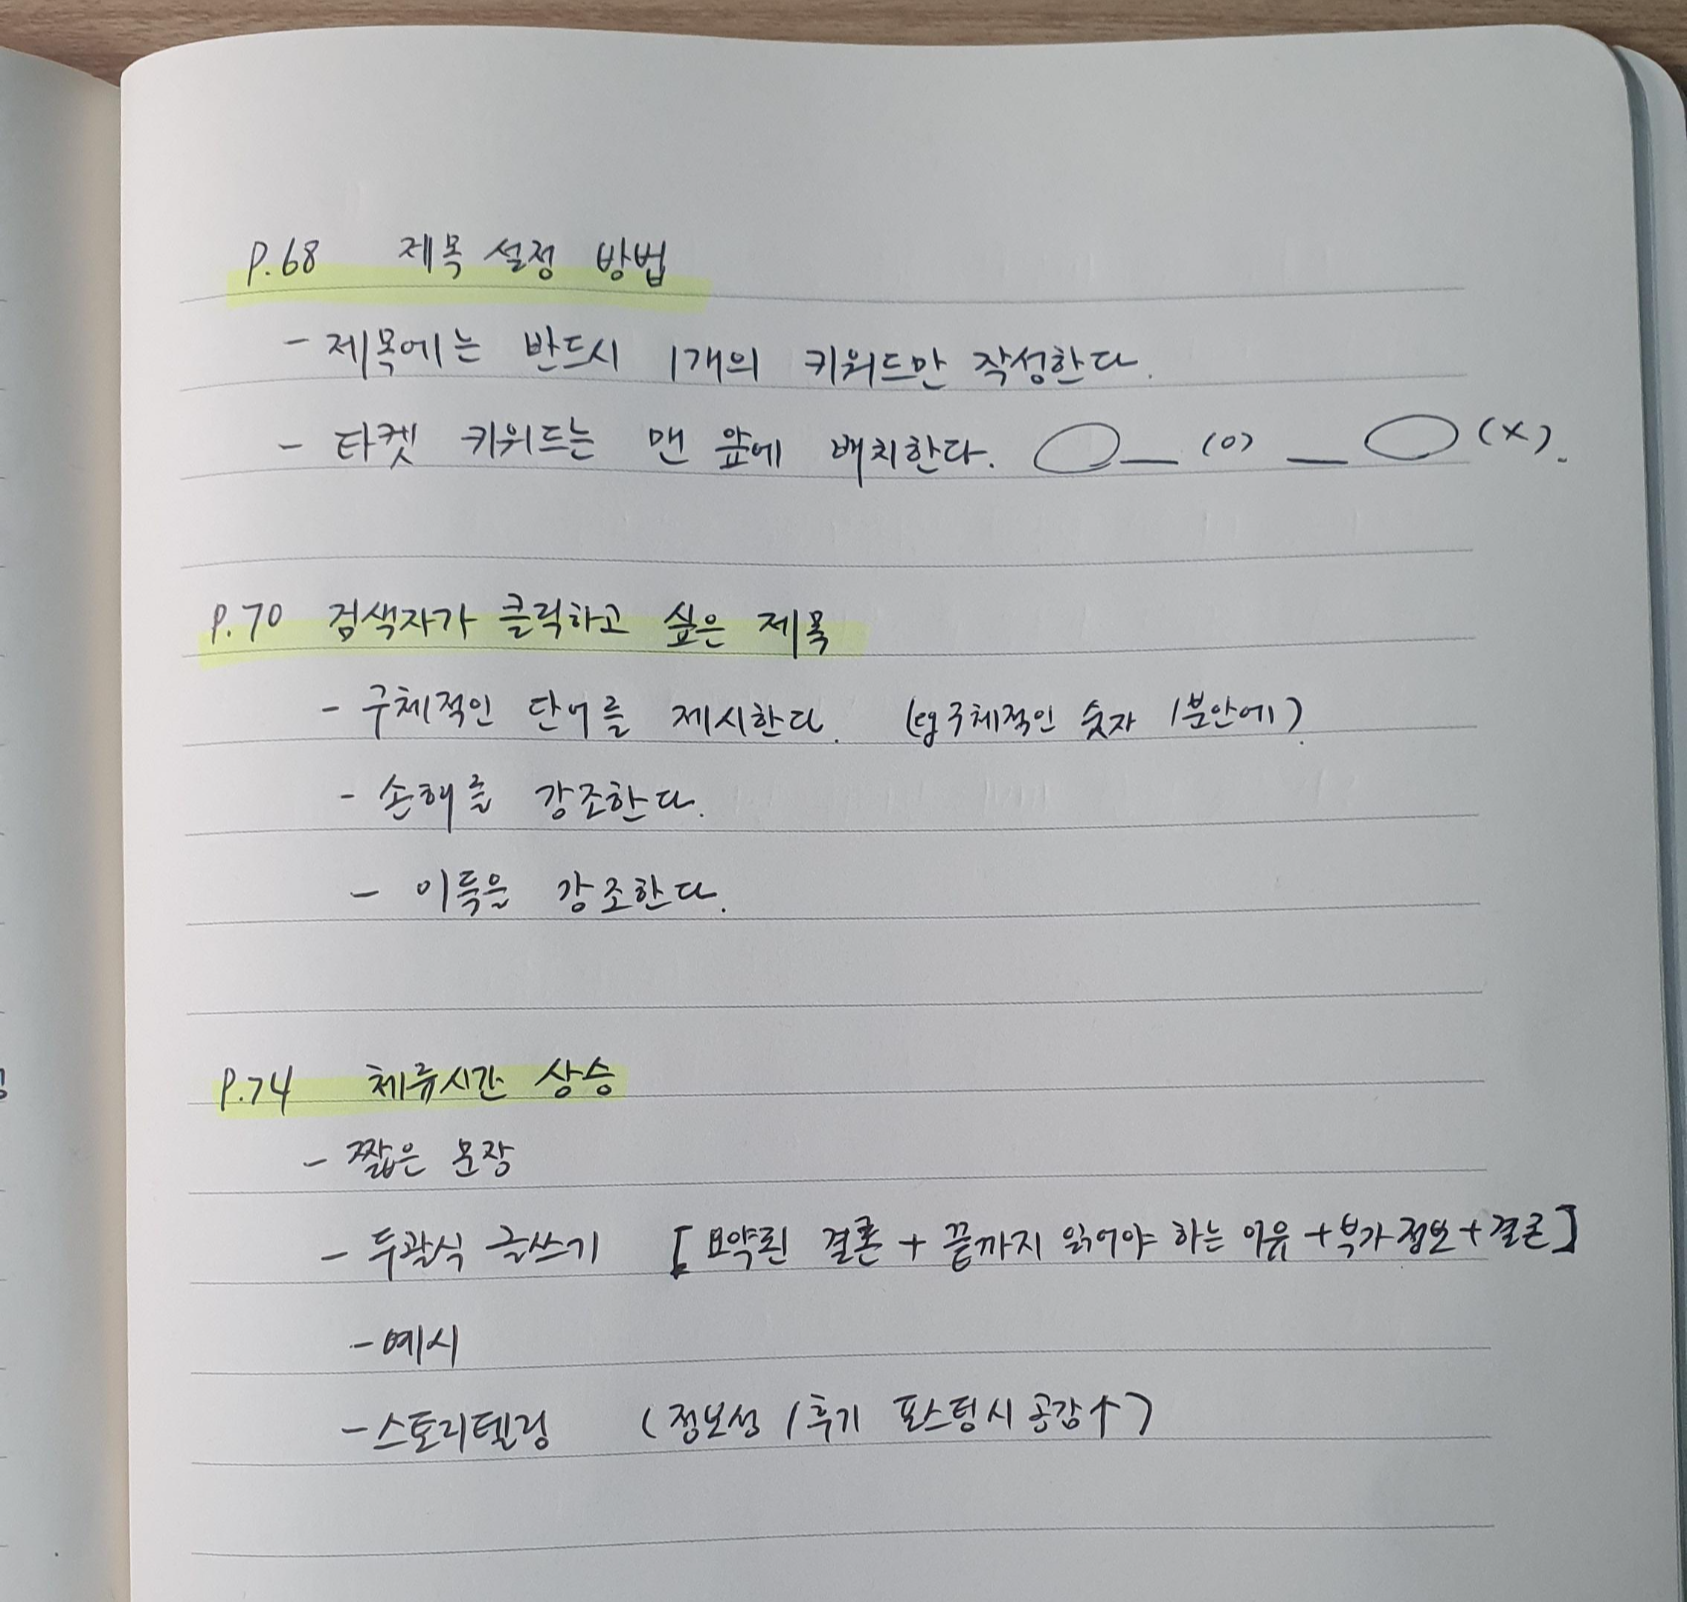 P.68 제목 설정 방법
- 제목에는 반드시 1개의 키워드만 작성한다.
- 타켓 키워드는 맨 앞에 배치한다. ◯_ (o) _ ◯ (x).
P.70 검색자가 클릭하고 싶은 제목
- 구체적인 단어를 제시한다. (eg 구체적인 숫자 1분안에).
- 손해를 강조한다.
- 이득을 강조한다.
P.74 체류시간 상승
- 짧은 문장
- 두괄식 글쓰기 [요약된 결론 + 끝까지 읽어야 하는 이유 + 부가정보 + 결론]
- 예시
- 스토리텔링 (정보성 / 후기 포스팅시 공감↑)